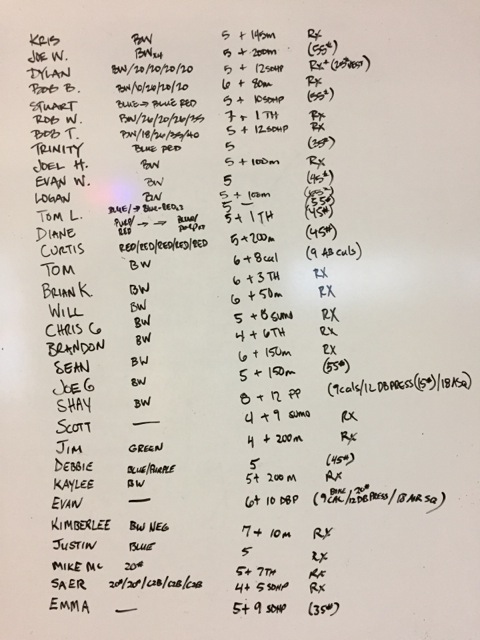 KRIS BW 5 + 145m RX
JOE W. BWx4 5 + 200m (55#)
DYLAN BW/20/20/20/20 5 + 12SDHP RX+ (20#VEST)
BOB B. BW/10/20/20/20 6 + 80m RX
STUART BLUE → BLUE RED 5 + 10SDHP (55#)
ROB W. BW/26/20/26/35 7 + 1TH RX
BOB T. BW/18/26/35/40 5 + 12SDHP RX
TRINITY BLUE RED 5 (35#)
JOEL H. BW 5 + 100m RX
EVAN W. BW 5 (45#)
LOGAN BW 5 + 100m (65#)
TOM L. BLUE/→ BLUE-REDx3 5 — (55#)
DIANE PURP/RED → → BLUE/ 5 + 1TH (45#)
CURTIS RED/RED/RED/RED/RED 5 + 200m (45#)
TOM BW 6 + 8cal (9 AB cals)
BRIAN K. BW 6 + 3TH RX
WILL BW 6 + 50m RX
CHRIS G BW 5 + 8 SUMO RX
BRANDON BW 4 + 6TH RX
SEAN BW 6 + 150m RX
JOE G BW 5 + 150m (55#)
SHAY BW 8 + 12 PP (9cals/12 DB PRESS(15#)/18 ASQ)
SCOTT — 4 + 9 SUMO RX
JIM GREEN 4 + 200m RX
DEBBIE BLUE/PURPLE 5 (45#)
KAYLEE BW 5 + 200 m RX
EVAN — 6 + 10 DBP (9 CAL/12 DB PRESS 20#/18 AIR SQ)
KIMBERLEE BW NEG 7 + 10m RX
JUSTIN BLUE 5 RX
MIKE MC 20# 5 + 7TH RX
SAER 20#/20#/C2B/C2B/C2B 4 + 5 SDHP RX
EMMA — 5 + 9 SDHP (35#)